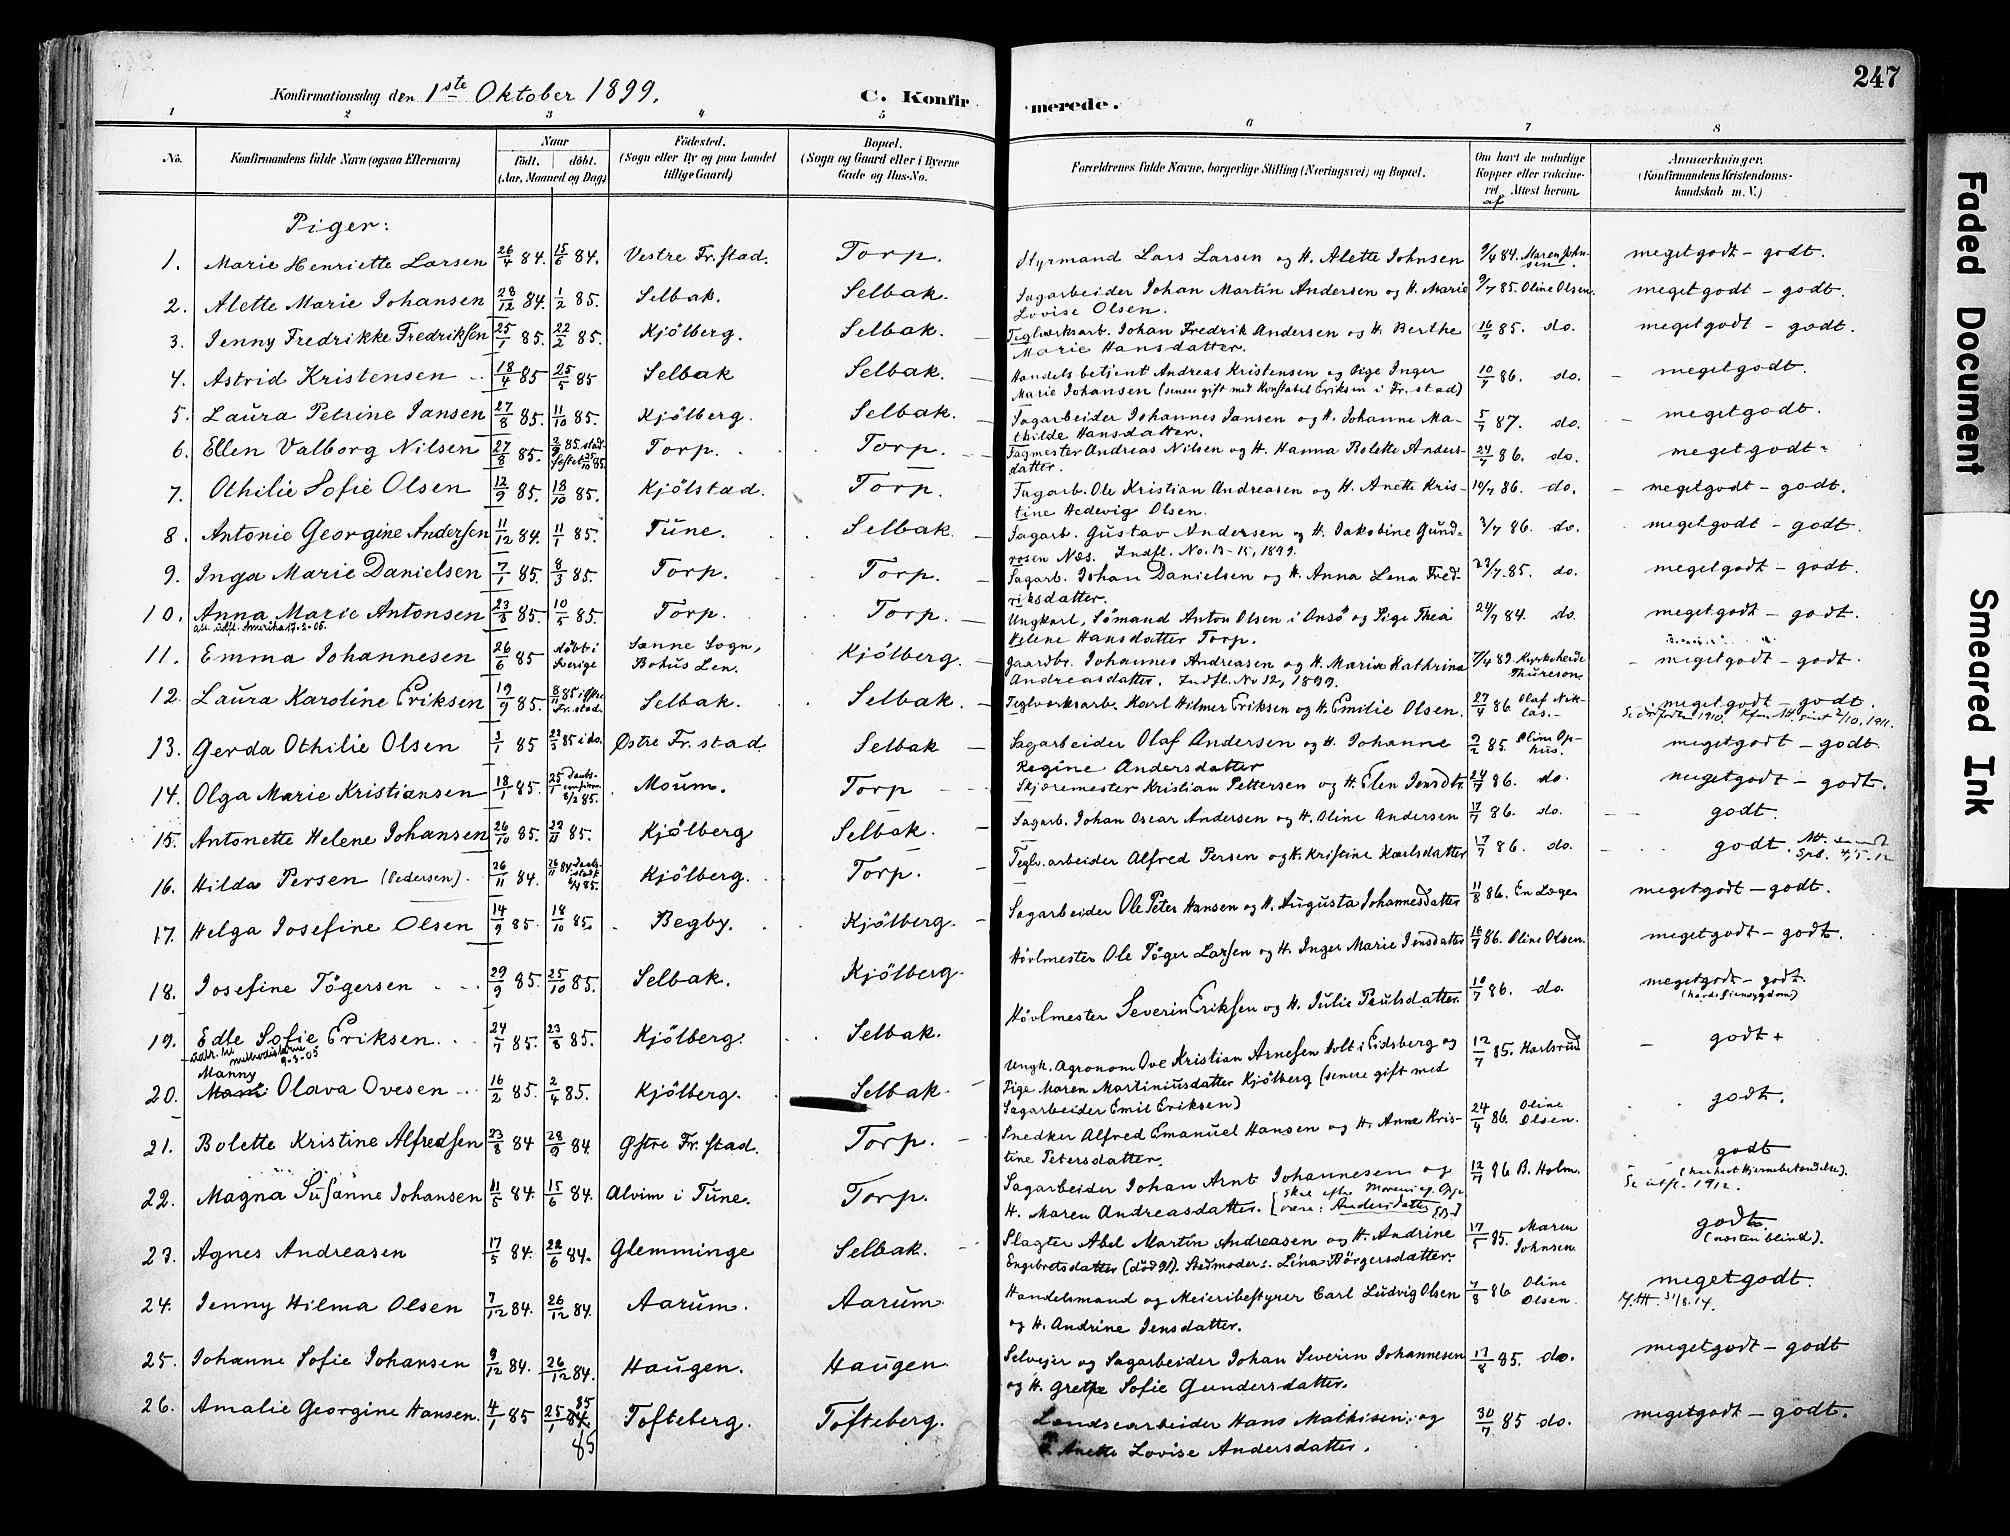 247
Konfirmationsdag den 1ste Oktober 1899. C. Konfirmerede.
1 2 3 4 5 6 7 8
No. Konfirmandens fulde Navn (ogsaa Efternavn) Naar født, døbt. (Aar, Maaned og Dag) Fødested. (Sogn eller By og paa Landet tillige Gaard) Bopæl. (Sogn og Gaard eller i Byerne Gade og Hus-No. Forældrenes fulde Navne, borgerlige Stilling (Næringsvei) og Bopæl. Om havt de naturlige Kopper eller vaccineret af Attest herom Anmærkninger. (Konfirmandens Kristendomskundskab m. V.)
Piger:
1. Marie Henriette Larsen 26/4 84. 15/6 84. Vestre Fr.stad. Torp. Styrmand Lars Larsen og H. Alette Johnsen 9/4 84. Maren Johnsen. meget godt - godt.
2. Alette Marie Johansen 28/12 84. 1/2 85. Selbak. Selbak. Sagarbeider Johan Martin Andersen og H. Marie 9/7 85. Oline Olsen. meget godt - godt.
Lovise Olsen.
3. Jenny Fredrikke Fredriksen 25/1 85. 22/2 85. Kjölberg. Selbak. Teglværksarb. Johan Fredrik Andersen og H. Berthe 16/7 85. do. meget godt - godt.
Marie Hansdatter.
4. Astrid Kristensen 18/4 85 25/5 85 Selbak Selbak. Handelsbetjent Andreas Kristensen og Pige Inger 10/7 86. do. meget godt.
Marie Johansen (senere gift med Konstabel Eriksen i Fr.stad)
5. Laura Petrine Jansen 27/8 85. 11/10 85. Kjölberg. Selbak. Sagarbeider Johannes Jansen og H. Johanne Ma- 5/7 87. do. meget godt.
thilde Hansdatter.
6. Ellen Valborg Nilsen 27/8 85. 85. stadfestet 25/10 85. Torp. Torp. Sagmester Andreas Nilsen og H. Hanna Bolette Anders- 24/7 86. do. meget godt -
datter.
7. Othilie Sofie Olsen 12/9 85. 18/10 85. Kjölstad. Torp. Sagarb. Ole Kristian Andreasen og H. Anette Kris- 10/7 86. do. meget godt - godt.
tine Hedevig Olsen.
8. Antonie Georgine Andersen 11/12 84. 11/1 85. Tune. Selbak. Sagarb. Gustav Andersen og H. Jakobine Gund- 3/7 86. do. meget godt - godt.
rosen Næs. Indfl. No. 13-15, 1899.
9. Inga Marie Danielsen 7/1 85. 8/3 85. Torp. Torp. Sagarb. Johan Danielsen og H. Anna Lena Fred- 23/7 85. do. meget godt - godt.
riksdatter.
10. Anna Marie Antonsen 23/3 85. 10/5 85. Torp. Torp. Ungkarl, Sömand Anton Olsen i Onsö og Pige Thea 24/7 84. do. meget godt - godt.
att. utfl. Amerika 17-3-05. Helene Hansdatter Torp.
11. Emma Johannesen 26/6 85 döbt i Sverige Sanne Sogn, Bohus Len. Kjölberg. Gaardbr. Johannes Andreasen og H. Maria Kathrina 7/4 89. Kyrkoherde Thureson. meget godt - godt.
Andreasdatter. Indfl. No 12, 1899.
12. Laura Karoline Eriksen 19/9 85. 8/11 85 i Østre Fr.stad. Selbak. Selbak. Teglværksarb. Karl Hilmer Eriksen og H. Emilie Olsen. 27/4 86. Olaf Niklas. - meget godt - godt.
13. Gerda Othilie Olsen 3/1 85 22/3 85 i do. Østre Fr.stad Selbak Sagarbeider Olaf Andersen og H. Johanne 9/2 85. Oline Ophus. meget godt - godt.
Regine Andersdatter
14. Olga Marie Kristiansen 18/1 85. 25/1 8/3 85. Moum. Torp Skjæremester Kristian Pettersen og H. Elen Jensdtr. 24/7 86. do. meget godt - godt.
15. Antonette Helene Johansen 26/10 85. 22/11 85. Kjölberg Selbak. Sagarb. Johan Oscar Andersen og H. Oline Andersen 17/7 86. do. godt.
16. Hilda Persen (Pedersen). 26/11 84. Kjölberg. Torp. Teglv.arbeider Alfred Persen og H. Kristine Karlsdatter 17/7 86. do. godt.
17. Helga Josefine Olsen 14/9 85. 18/10 85. Begby. Kjölberg. Sagarbeider Ole Peter Hansen og H. Augusta Johannesdatter 11/8 86. En Læge. meget godt - godt.
18. Josefine Tögersen 29/9 85. 25/10 85. Selbak. Kjölberg. Hövlmester Ole Töger Larsen og H. Inger Marie Jensdatter 16/7 86. Oline Olsen. meget godt - godt.
19. Edle Sofie Eriksen. 24/7 85. 23/8 85. Kjölberg. Selbak. Hövlmester Severin Eriksen og H. Julie Paulsdatter. 10/7 86. do. meget godt - godt.
udtr. til methodistene 9-3-05
20. Manny Olava Ovesen 16/2 85. 2/4 85. Kjölberg. Selbak. Ungk. Agronom Ove Kristian Arnesen Holt i Eidsberg og 12/7 85. Karlsrud godt +
Pige Maren Martiniusdatter Kjölberg (senere gift med
Sagarbeider Emil Eriksen)
21. Bolette Kristine Alfredsen 23/8 84 28/9 84. Østre Fr.stad. Torp. Snedker Alfred Emanuel Hansen og H. Anne Kris- 24/4 86. Oline Olsen. godt.
tine Petersdatter.
22. Magna Susanne Johansen 11/5 84. 15/6 84. Alvim i Tune. Torp. Sagarbeider Johan Arnt Johannesen og 12/7 86 B. Holm. godt
H. Maren Andreasdatter. Se utfl. 1912.
23. Agnes Andreasen 17/5 84. 22/6 84. Glemminge Selbak. Slagter Abel Martin Andreasen og H. Andrine 17/5 85. Maren Johnsen. godt. (næsten blind).
Engebretsdatter (död 91). Stedmoder: Lina Börgersdatter.
24. Jenny Hilma Olsen 7/12 84. 26/12 84. Aarum. Aarum. Handelsmand og Meieribestyrer Carl Ludvig Olsen 7/8 86 Oline Olsen. meget godt.
og H. Andrine Jensdatter.
25. Johanne Sofie Johansen 9/12 84. 26/12 84. Haugen. Haugen. Selveier og Sagarbeider Johan Severin Johannesen 17/8 85. do. meget godt - godt
og H. Grethe Sofie Gundersdatter.
26. Amalie Georgine Hansen. 4/1 85 25/1 85 Tofteberg. Tofteberg. Landsearbeider Hans Mathisen og 30/7 85 do. meget godt - godt.
H. Anette Lovise Andersdatter.
Faded Document
Smeared Ink